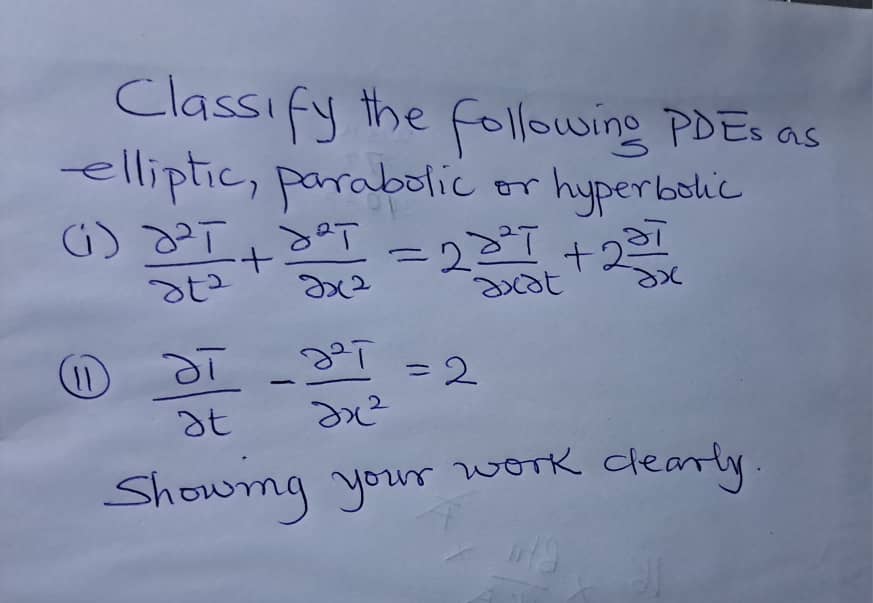 Classify the following PDEs as
elliptic, parabolic or hyperbolic
(i) ∂²T/∂t² + ∂²T/∂x² = 2 ∂²T/∂x∂t + 2 ∂T/∂x
(11) ∂T/∂t - ∂²T/∂x² = 2
Showing your work clearly.